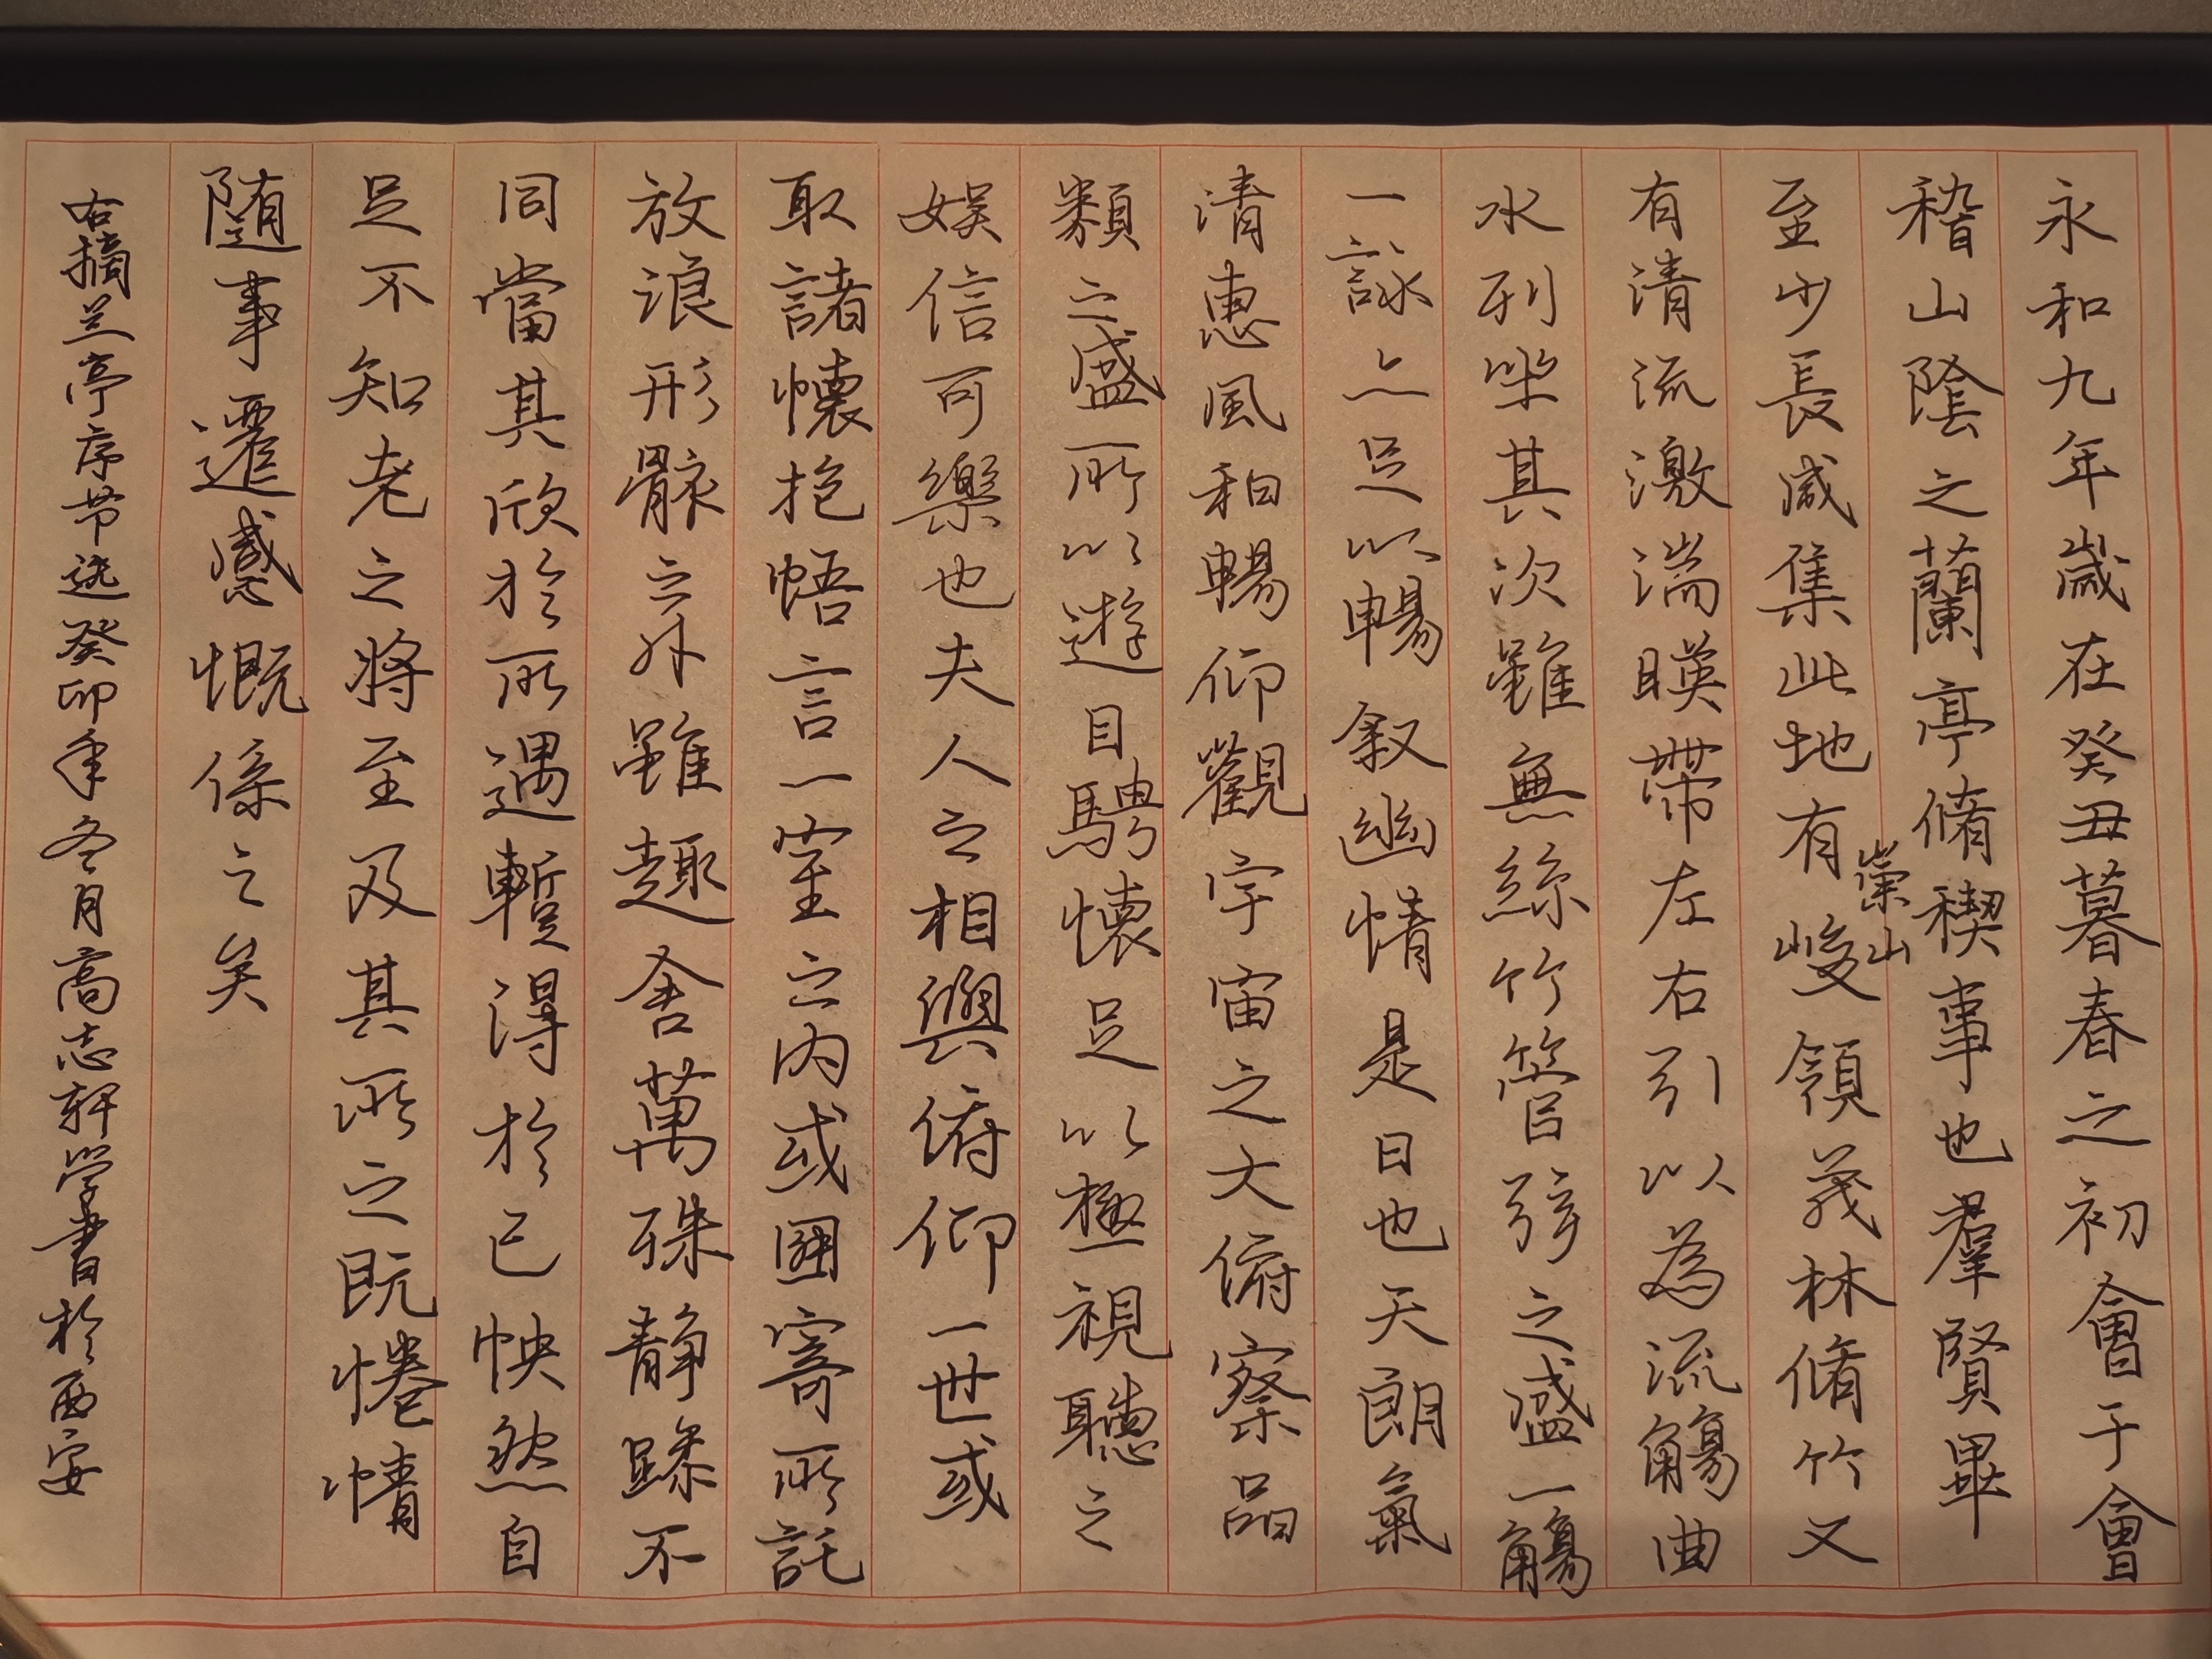 永和九年歲在癸丑暮春之初會于會
稽山陰之蘭亭脩稧事也羣賢畢
至少長咸集此地有崇山峻領茂林脩竹又
有清流激湍暎帶左右引以為流觴曲
水列坐其次雖無絲竹管弦之盛一觴
一詠亦足以暢叙幽情是日也天朗氣
清惠風和暢仰觀宇宙之大俯察品
類之盛所以遊目騁懷足以極視聽之
娛信可樂也夫人之相與俯仰一世或
取諸懷抱悟言一室之內或因寄所託
放浪形骸之外雖趣舍萬殊静躁不
同當其欣於所遇暫得於己怏然自
足不知老之將至及其所之既惓情
随事遷感慨係之矣
右摘兰亭序节选癸卯年冬月高志轩学書於西安